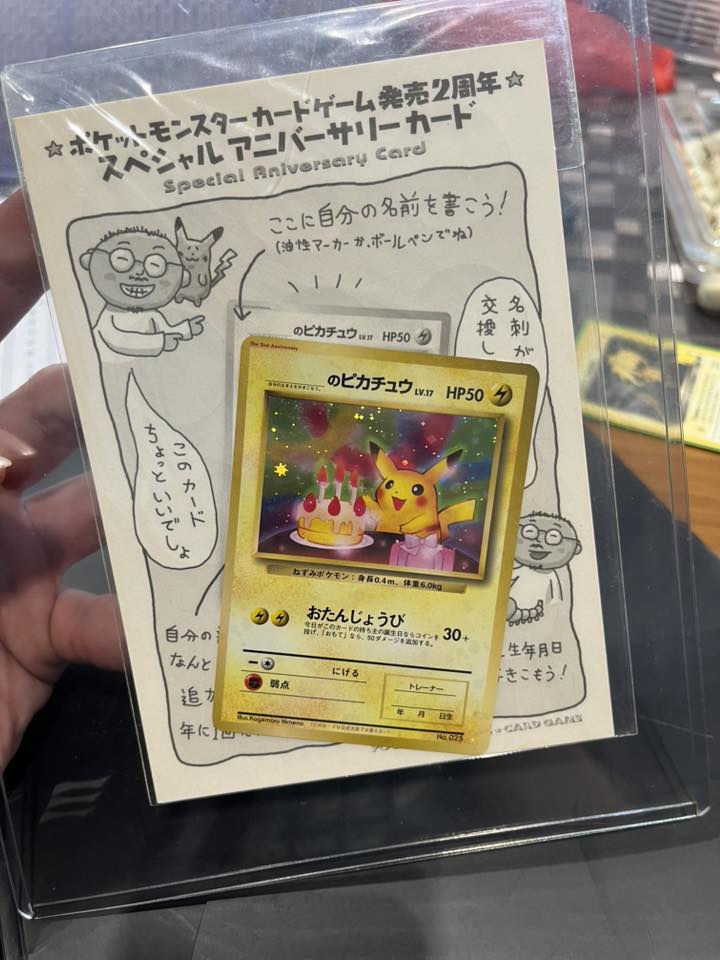 ☆ポケットモンスターカードゲーム発売2周年☆
スペシャル アニバーサリーカード
Special Aniversary Card
ここに自分の名前を書こう!
(油性マーカーか、ボールペンでね)
名刺が
交換し
のピカチュウ LV.17 HP50
このカード
ちょっといいでしょ
The 2nd Anniversary
のピカチュウ LV.17 HP50
ねずみポケモン:身長0.4m、体重6.0kg
おたんじょうび 30+
今日がこのカードの持ち主の誕生日ならコインを
投げ、「おもて」なら、50ダメージを追加する。
にげる
弱点
トレーナー
年 月 日生
Illus.Kagemaru Himeno
No.025
自分の
なんと
追か
年に1回
生年月日
きこもう!
CARD GAME